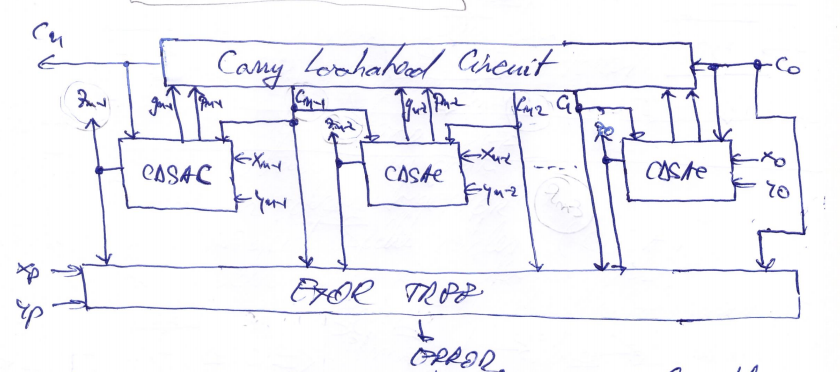 Cn Carry Lookahead Circuit C0
zn-1 gn-1 pn-1 Cn-1 zn-2 gn-2 pn-2 Cn-2 C1 z0
CDSAC Xn-1 CDSAC Xn-2 ---- CDSAC X0
Yn-1 Yn-2 Y0
Xp
Yp EXOR TREE
ERROR